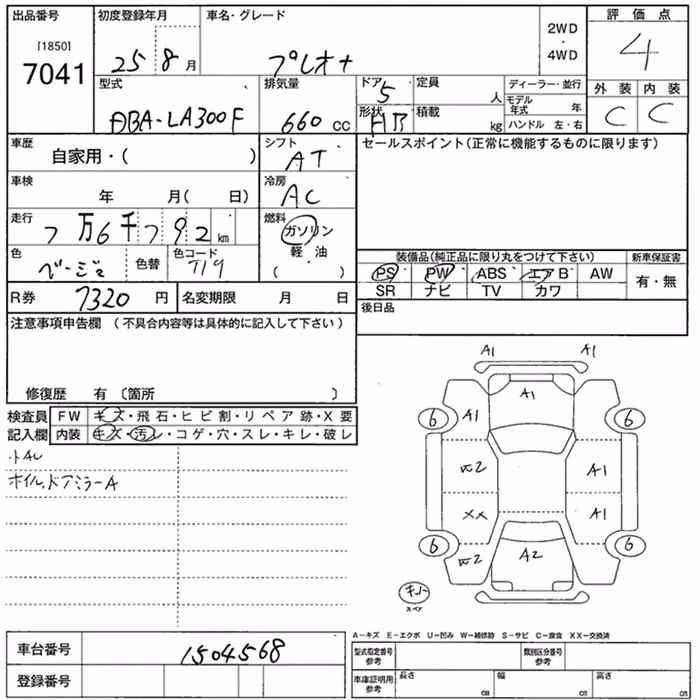 出品番号 初度登録年月 車名・グレード 2WD 評価点
[1850] ・
7041 25 8月 プレオ+ 4WD 4
型式 排気量 ドア 5 定員 人 ディーラー・並行 外装 内装
DBA-LA300F 660 cc 形状 HB 積載 kg モデル年式 年 C C
ハンドル 左・右
車歴 自家用・( ) シフト AT セールスポイント(正常に機能するものに限ります)
車検 年 月( 日) 冷房 AC
走行 7万6千792km 燃料 ガソリン
軽油
色 ベージュ 色替 色コード T19 ( ) 装備品(純正品に限り丸をつけて下さい) 新車保証書
PS PW ABS エアB AW 有・無
R券 7320 円 名変期限 月 日 SR ナビ TV カワ
注意事項申告欄 (不具合内容等は具体的に記入して下さい) 後日品
修復歴 有〔箇所 〕
検査員 FW キズ・飛石・ヒビ割・リペア跡・X要
記入欄 内装 キズ・汚レ・コゲ・穴・スレ・キレ・破レ
小AU
ホイル、ドアミラーA
A1 A1
A1
6 A1 6
W2 A1
XX A1
6 W2 A2 6
A-キズ E-エクボ U-凹み W-補修跡 S-サビ C-腐食 XX-交換済
車台番号 1504568 型式指定番号 参考 類別区分番号 参考
登録番号 車庫証明用 参考 長さ cm 幅 cm 高さ cm